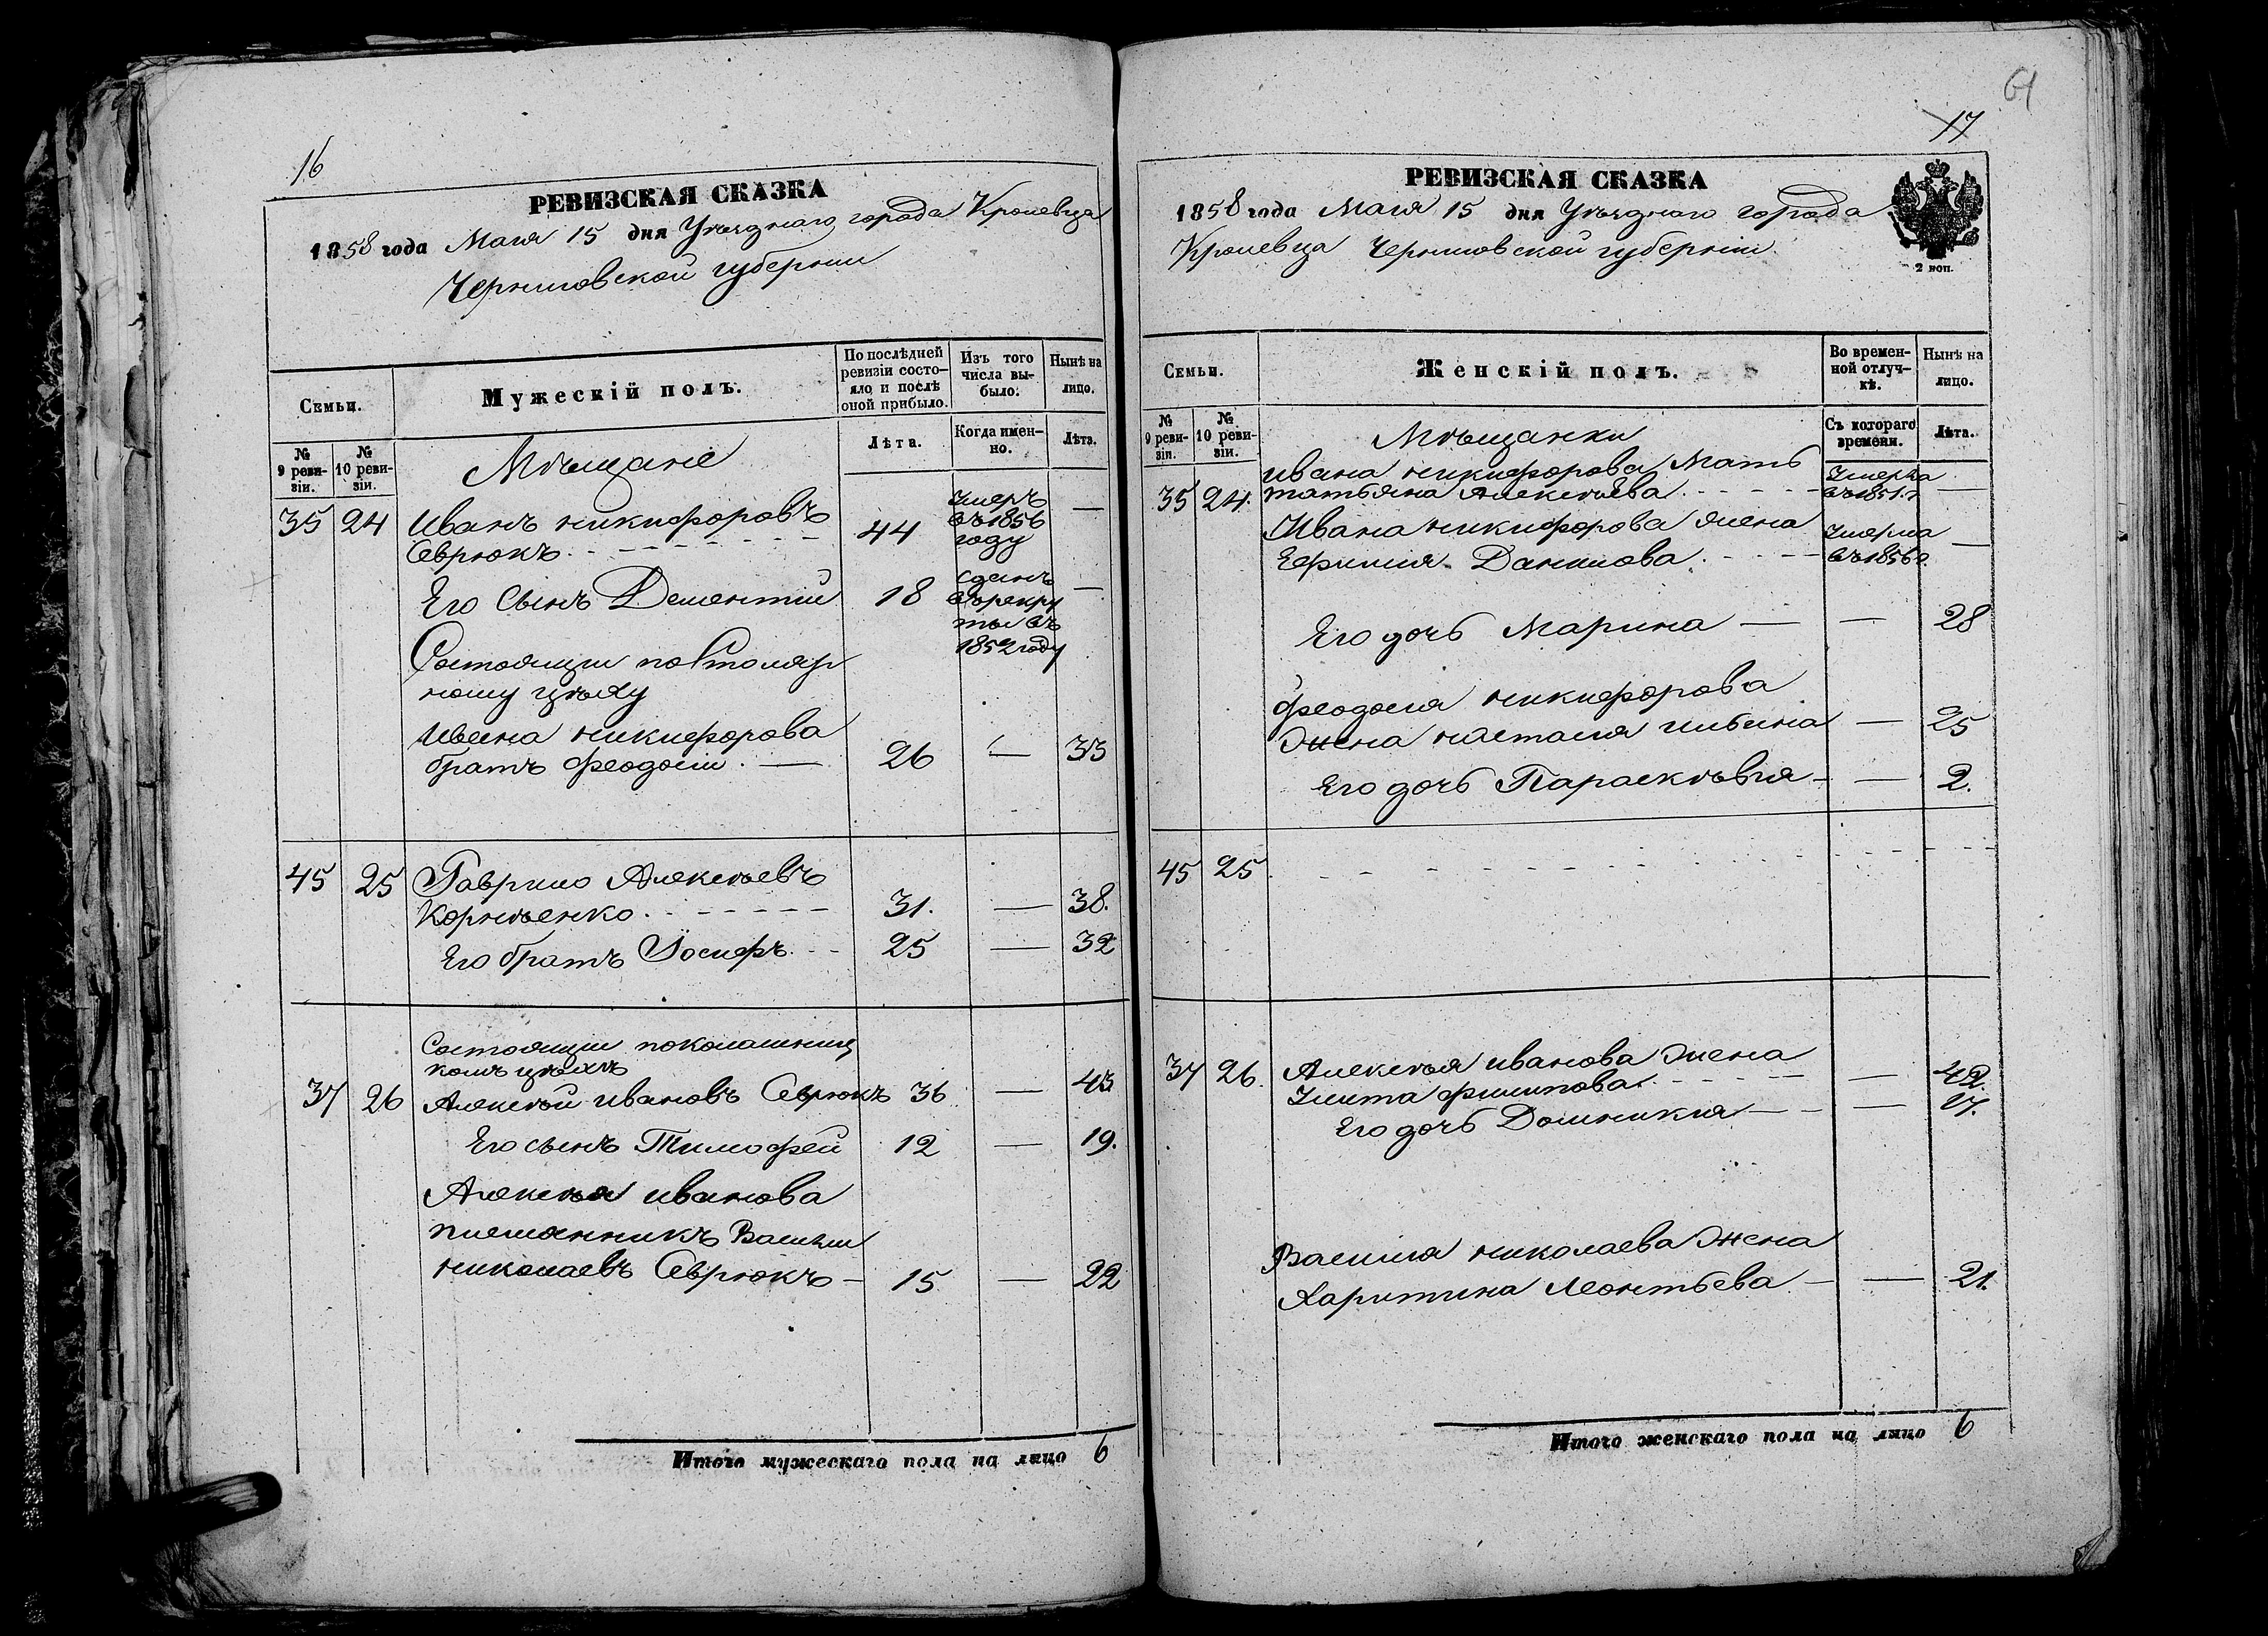 16
РЕВИЗСКАЯ СКАЗКА
1858 года Маія 15 дня Уѣзднаго города Кролевца
Черниговской губерніи
Семьи.
Мужескій полъ.
По послѣдней ревизіи состояло и послѣ оной прибыло.
Изъ того числа выбыло.
Нынѣ на лицо.
№ 9 ревизіи.
№ 10 ревизіи.
Лѣта.
Когда именно.
Лѣта.
Мѣщане
35 24 Иванъ Никифоровъ
Севрюкъ 44 Умеръ въ 1856 году —
Его сынъ Дементій 18 сданъ въ рекруты въ 1852 году —
Состоящіи по столяр
ному цѣху
Ивана Никифорова
братъ Феодосій — 26 — 33
45 25 Гаврило Алексѣевъ
Корнѣенко 31. — 38.
Его братъ Іосифъ 25 — 32
Состоящіи по калашниц
комъ цѣхѣ
37 26 Алексѣй Ивановъ Севрюкъ 36 — 43
Его сынъ Тимофей 12 — 19.
Алексѣя Иванова
племянникъ Василій
Николаевъ Севрюкъ — 15 — 22
Итого мужескаго пола на лицо 6
61
17
РЕВИЗСКАЯ СКАЗКА
1858 года Маія 15 дня Уѣзднаго города
Кролевца Черниговской губерніи
2 коп.
Семьи.
Женскій полъ.
Во временной отлучкѣ.
Нынѣ на лицо.
№ 9 ревизіи.
№ 10 ревизіи.
Съ котораго времени.
Лѣта.
Мѣщанки
Ивана Никифорова Мать
35 24. Татьяна Алексѣева Умерла въ 1851 г. —
Ивана Никифорова жена
Ефимія Данилова Умерла въ 1856 г. —
Его дочь Марина — — 28
Феодосія Никифорова
жена Настасія Ильина — 25
Его дочь Параскѣвія — — 2.
45 25.
37 26. Алексѣя Иванова жена
Улита Филипова — 42.
Его дочь Домникія — — 17.
Василія Николаева жена
Харитина Леонтьева — — 21.
Итого женскаго пола на лицо 6